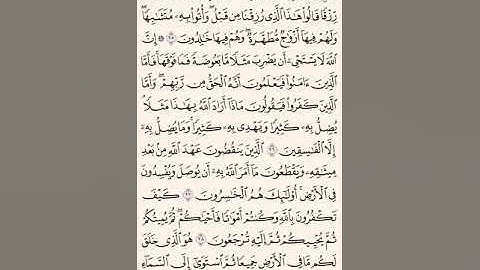 رِزْقًا قَالُوا۟ هَـٰذَا ٱلَّذِى رُزِقْنَا مِن قَبْلُ ۖ وَأُتُوا۟ بِهِۦ مُتَشَـٰبِهًا ۖ
وَلَهُمْ فِيهَآ أَزْوَٰجٌ مُّطَهَّرَةٌ ۖ وَهُمْ فِيهَا خَـٰلِدُونَ ٢٥ ۞ إِنَّ
ٱللَّهَ لَا يَسْتَحْىِۦٓ أَن يَضْرِبَ مَثَلًا مَّا بَعُوضَةً فَمَا فَوْقَهَا ۚ فَأَمَّا
ٱلَّذِينَ ءَامَنُوا۟ فَيَعْلَمُونَ أَنَّهُ ٱلْحَقُّ مِن رَّبِّهِمْ ۖ وَأَمَّا
ٱلَّذِينَ كَفَرُوا۟ فَيَقُولُونَ مَاذَآ أَرَادَ ٱللَّهُ بِهَـٰذَا مَثَلًا ۘ
يُضِلُّ بِهِۦ كَثِيرًا وَيَهْدِى بِهِۦ كَثِيرًا ۚ وَمَا يُضِلُّ بِهِۦٓ
إِلَّا ٱلْفَـٰسِقِينَ ٢٦ ٱلَّذِينَ يَنقُضُونَ عَهْدَ ٱللَّهِ مِنۢ بَعْدِ
مِيثَـٰقِهِۦ وَيَقْطَعُونَ مَآ أَمَرَ ٱللَّهُ بِهِۦٓ أَن يُوصَلَ وَيُفْسِدُونَ
فِى ٱلْأَرْضِ ۚ أُو۟لَـٰٓئِكَ هُمُ ٱلْخَـٰسِرُونَ ٢٧ كَيْفَ
تَكْفُرُونَ بِٱللَّهِ وَكُنتُمْ أَمْوَٰتًا فَأَحْيَـٰكُمْ ۖ ثُمَّ يُمِيتُكُمْ
ثُمَّ يُحْيِيكُمْ ثُمَّ إِلَيْهِ تُرْجَعُونَ ٢٨ هُوَ ٱلَّذِى خَلَقَ
لَكُم مَّا فِى ٱلْأَرْضِ جَمِيعًا ثُمَّ ٱسْتَوَىٰٓ إِلَى ٱلسَّمَآءِ